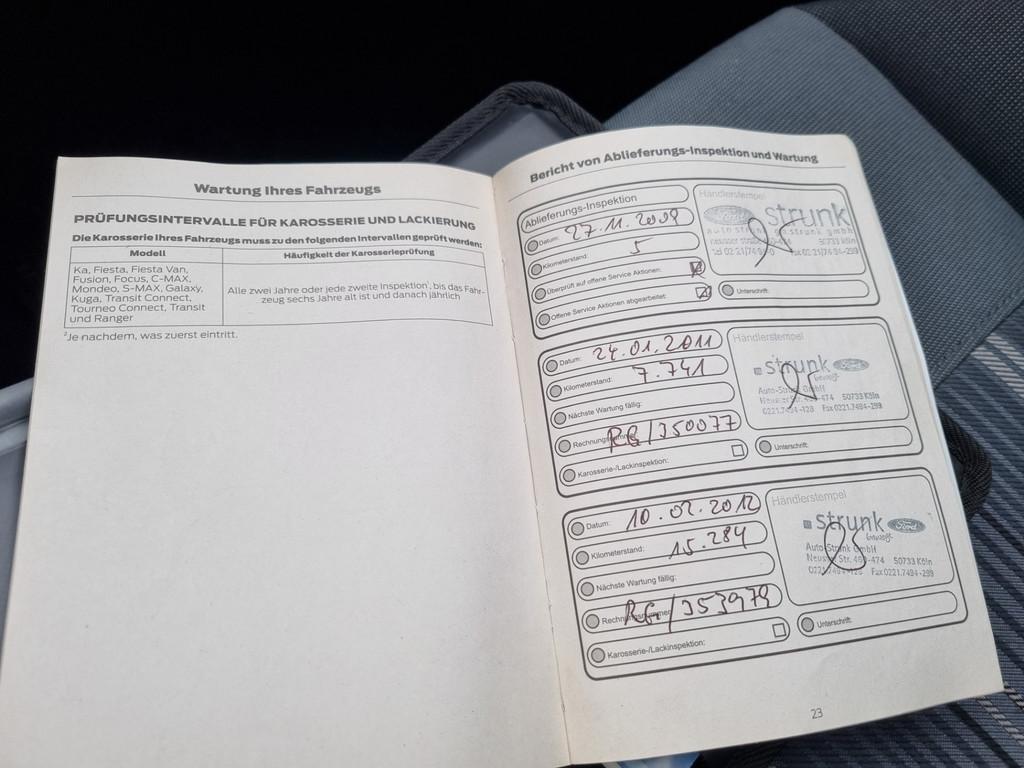 Wartung Ihres Fahrzeugs
PRÜFUNGSINTERVALLE FÜR KAROSSERIE UND LACKIERUNG
Die Karosserie Ihres Fahrzeugs muss zu den folgenden Intervallen geprüft werden:
Modell
Häufigkeit der Karosserieprüfung
Ka, Fiesta, Fiesta Van,
Fusion, Focus, C-MAX,
Mondeo, S-MAX, Galaxy,
Kuga, Transit Connect,
Tourneo Connect, Transit
und Ranger
Alle zwei Jahre oder jede zweite Inspektion¹, bis das Fahr-
zeug sechs Jahre alt ist und danach jährlich
²Je nachdem, was zuerst eintritt.
Bericht von Ablieferungs-Inspektion und Wartung
Ablieferungs-Inspektion
Datum: 27.11.2009
Kilometerstand: 5
Überprüft auf offene Service Aktionen:
Offene Service Aktionen abgearbeitet:
Händlerstempel
Ford strunk
50733 Köln
Unterschrift:
Datum: 24.01.2011
Kilometerstand: 7.741
Nächste Wartung fällig:
Rechnungsnummer: RG/350077
Karosserie-/Lackinspektion:
Händlerstempel
strunk Ford
bewegt
Auto-Strunk GmbH
Neusser Str. 460-474 50733 Köln
0221.7494-128 Fax 0221.7494-299
Unterschrift:
Datum: 10.02.2012
Kilometerstand: 15.284
Nächste Wartung fällig:
Rechnungsnummer: RG/353979
Karosserie-/Lackinspektion:
Händlerstempel
strunk Ford
bewegt
Auto-Strunk GmbH
Neusser Str. 460-474 50733 Köln
0221.7494-128 Fax 0221.7494-299
Unterschrift:
23